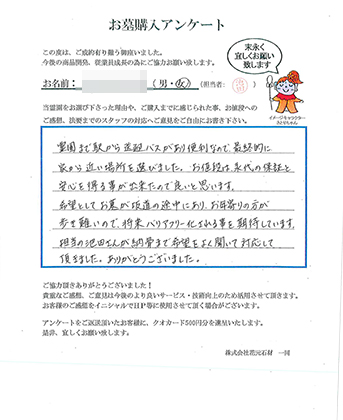 お墓購入アンケート
この度は、ご成約有り難う御座いました。
今後の商品開発、従業員成長の為にご協力お願い致します。
末永く
宜しくお願い
致します
お名前：
(男・女)
(担当者: 池田)
イメージキャラクター
当霊園をお選び下さった理由や、ご購入までに感じられた事、お値段への
ご感想、法要までのスタッフの対応へご意見をご自由にお書き下さい。
霊園まで駅から送迎バスがあり便利なので、最終的に
家から近い場所を選びました。お値段は永代の保証と
安心を得る事が出来たので良いと思います。
希望としてお墓が坂道の途中にあり、お年寄りの方が
歩き難いので、将来バリアフリー化される事を期待しています。
担当の池田さんが納骨まで希望をよく聞いて対応して
頂きました。ありがとうございました。
ご協力頂きありがとうございました！
貴重なご感想、ご意見は今後のより良いサービス・技術向上のため活用させて頂きます。
お客様のご感想をイニシャルでHP等に使用させて頂く場合がございます。
アンケートをご返送頂いたお客様に、クオカード500円分を進呈いたします。
是非、宜しくお願い致します。
株式会社花元石材 一同